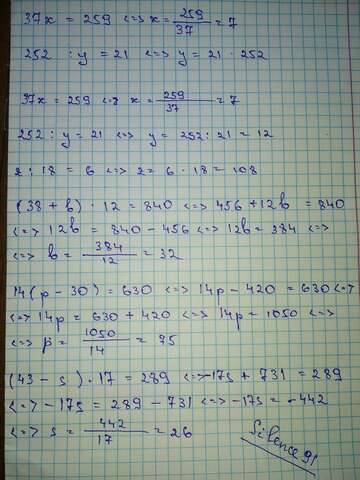 37x = 259 <=> x = 259/37 = 7
252 : y = 21 <=> y = 21 · 252
37x = 259 <=> x = 259/37 = 7
252 : y = 21 <=> y = 252 : 21 = 12
z : 18 = 6 <=> z = 6 · 18 = 108
(38 + b) · 12 = 840 <=> 456 + 12b = 840
<=> 12b = 840 - 456 <=> 12b = 384 <=>
<=> b = 384/12 = 32
14(p - 30) = 630 <=> 14p - 420 = 630 <=>
<=> 14p = 630 + 420 <=> 14p = 1050 <=>
<=> p = 1050/14 = 75
(43 - s) · 17 = 289 <=> -17s + 731 = 289
<=> -17s = 289 - 731 <=> -17s = -442
<=> s = 442/17 = 26
Silence 91